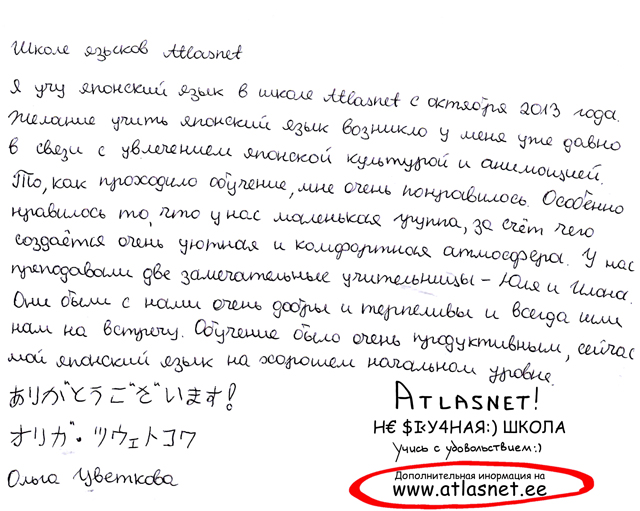 Школе языков Atlasnet
Я учу японский язык в школе Atlasnet с октября 2013 года.
Желание учить японский язык возникло у меня уже давно
в связи с увлечением японской культурой и анимацией.
То, как проходило обучение, мне очень понравилось. Особенно
нравилось то, что у нас маленькая группа, за счёт чего
создаётся очень уютная и комфортная атмосфера. У нас
преподавали две замечательные учительницы - Юля и Илана.
Они были с нами очень добры и терпеливы и всегда шли
нам на встречу. Обучение было очень продуктивным, сейчас
мой японский язык на хорошем начальном уровне.
ありがとうございます!
オリガ・ツウェトコワ
Ольга Цветкова
ATLASNET!
Н€ $KУ4НАЯ:) ШКОЛА
Учись с удовольствием:)
Дополнительная инормация на
www.atlasnet.ee